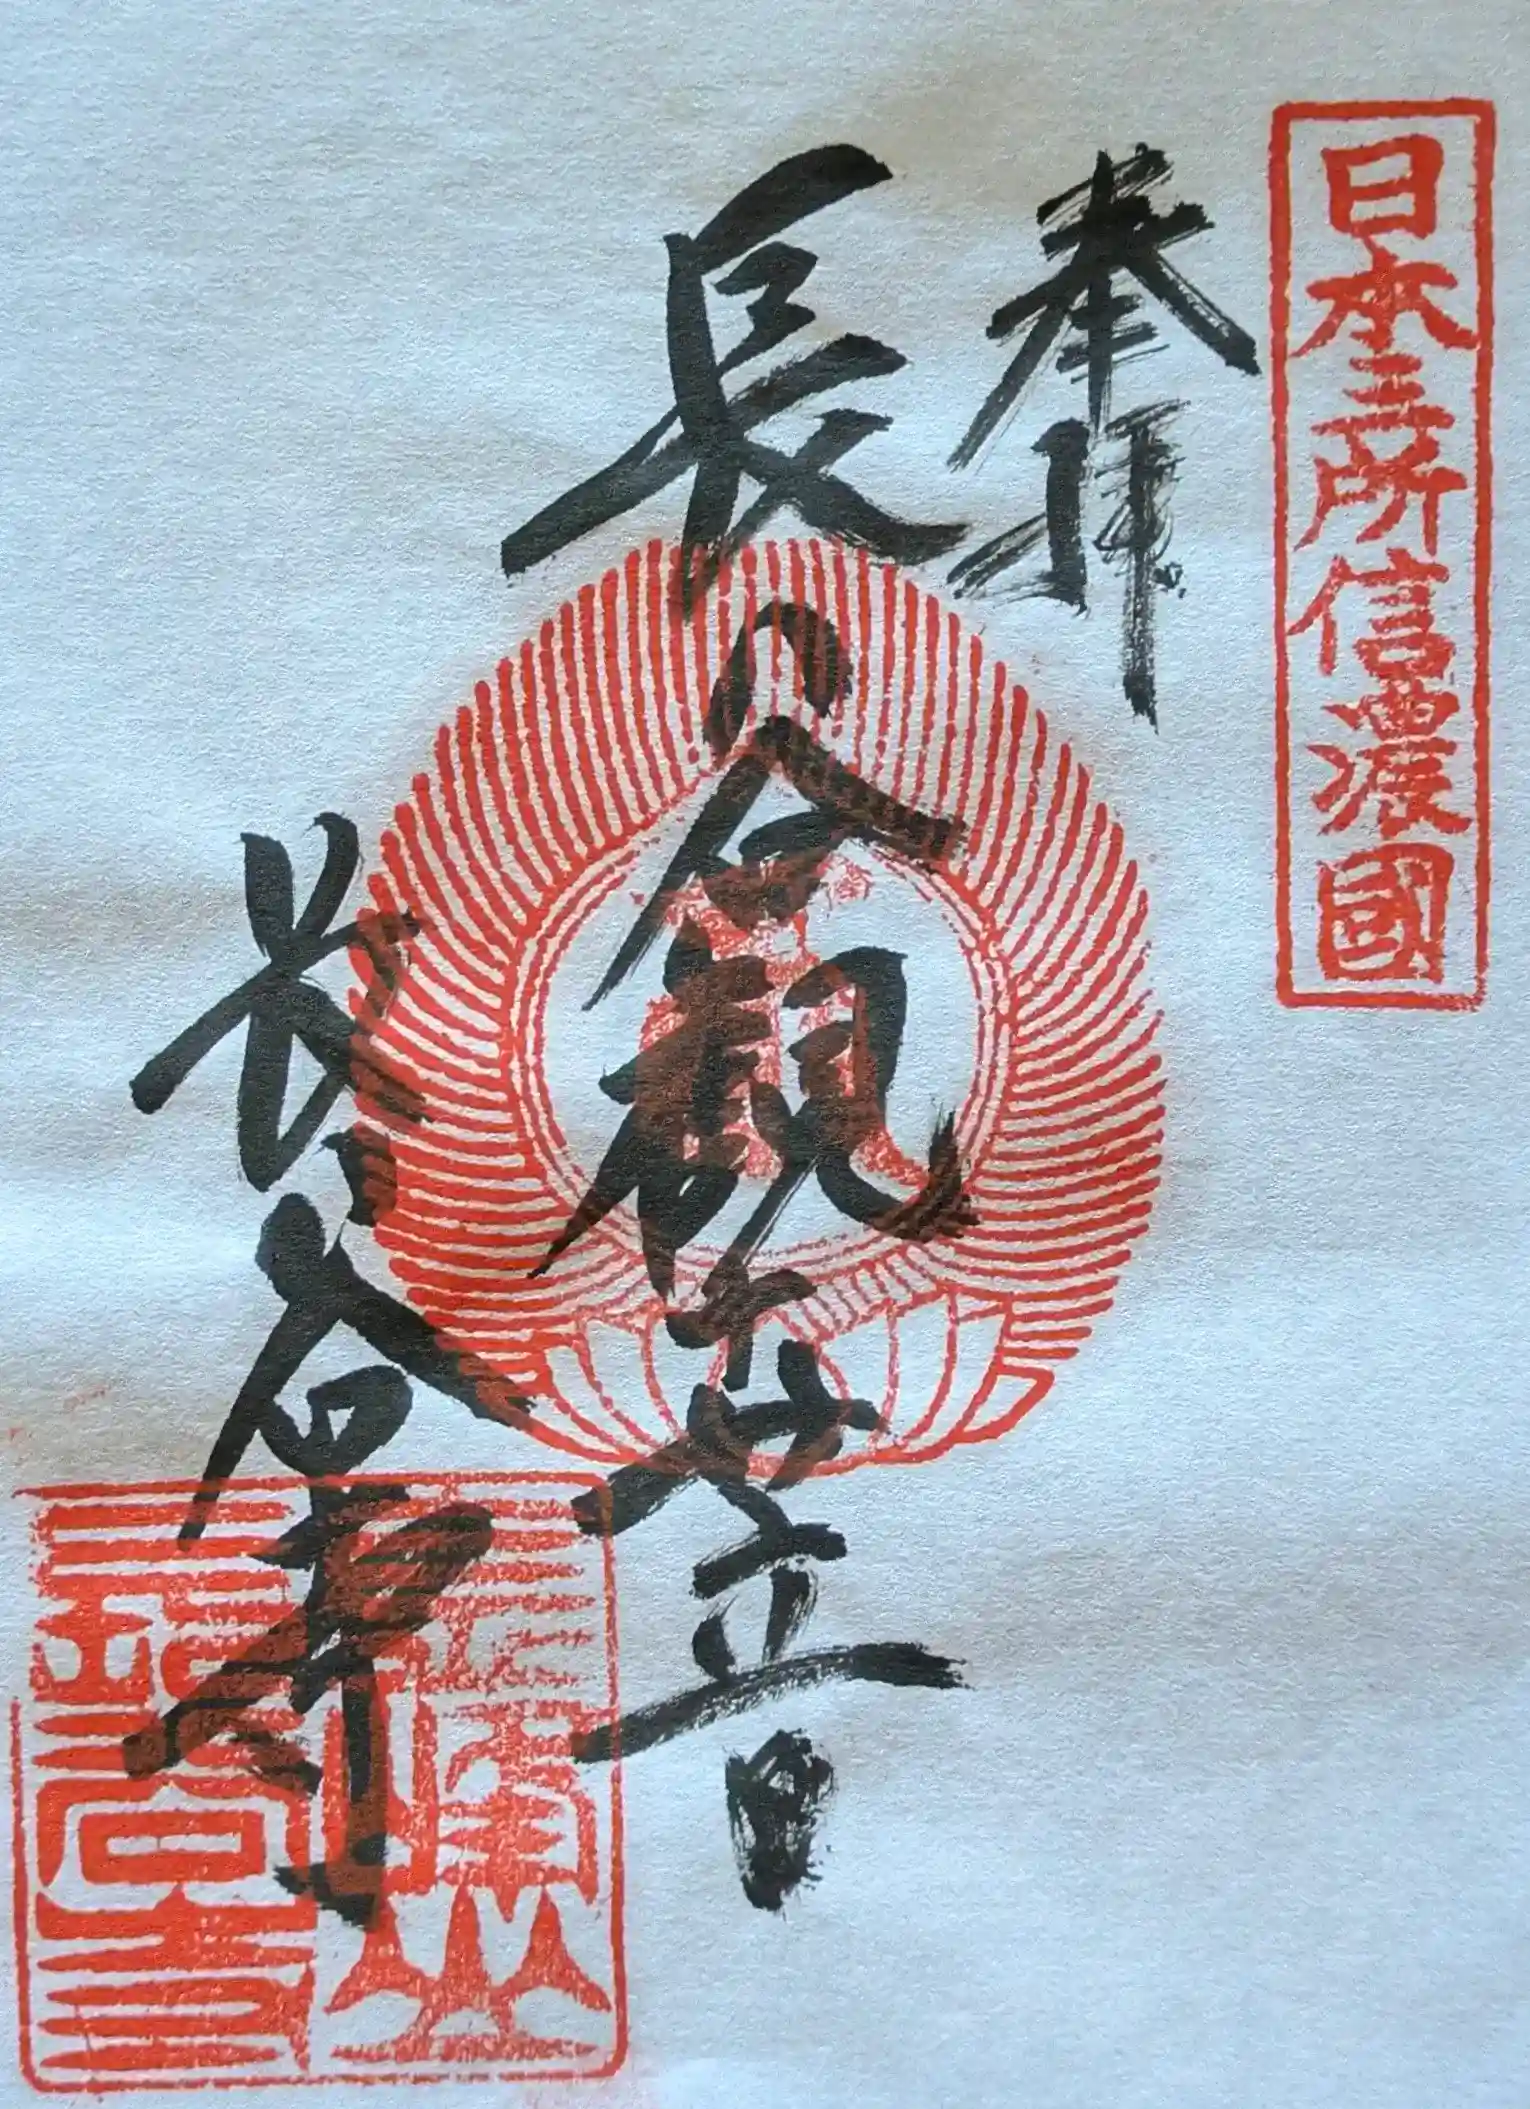 日本三所信濃國
奉拝
長谷観世音
長谷寺